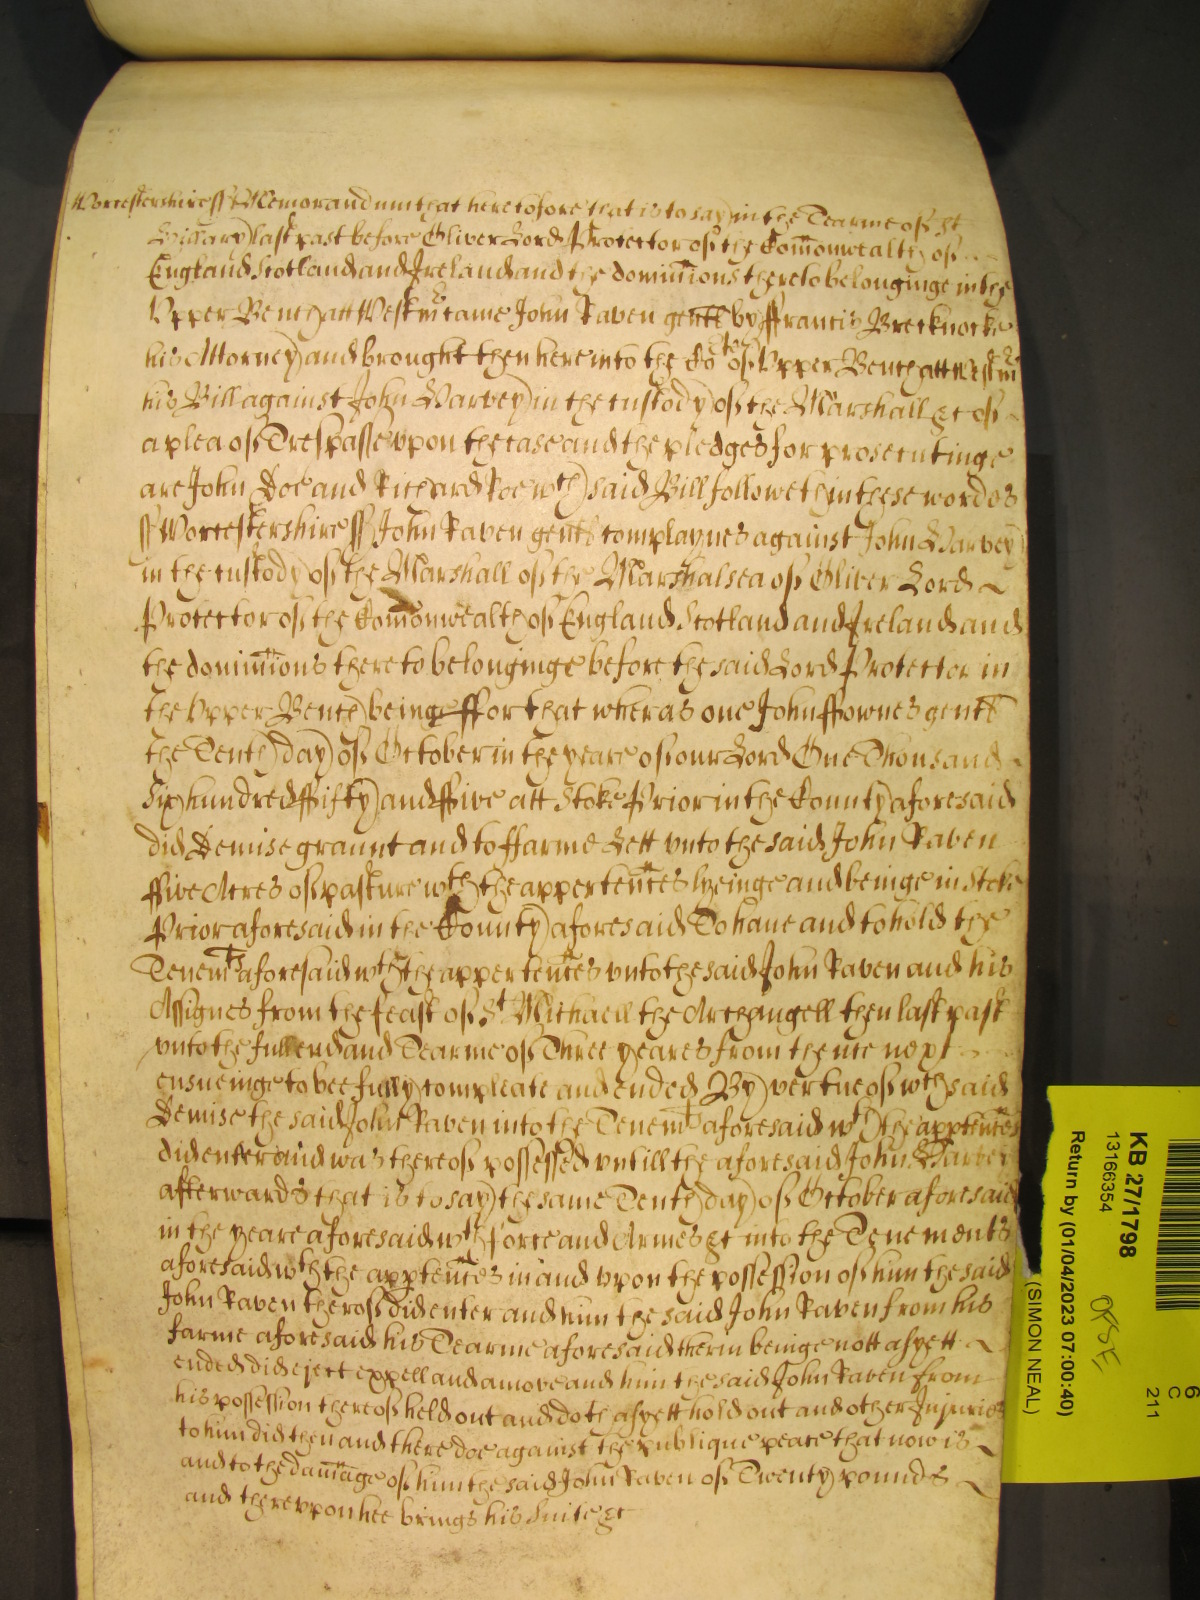 Worcestershire ss Memorandum that heretofore that is to say in the Tearme of St
Hillary last past before Oliver Lord Protector of the Com̄onwealth of
England Scotland and Ireland and the domin̄ions thereto belonginge in the
Upper Bench att Westmr came John Raven gent̄ by ffrancis Brecknocke
his Attorney and brought then here into the Co:rt of Upper Bench att Westmr
his Bill against John Harvey in the custody of the Marshall &c of
a plea of Trespasse upon the case and the pledges for prosecutinge
are John Doe and Richard Roe wch said Bill followeth in these wordes
ss Worcestershire ss John Raven gent̄ complaynes against John Harvey
in the custody of the Marshall of the Marshalsea of Oliver Lord
Protector of the Com̄onwealth of England Scotland and Ireland and
the domin̄ions thereto belonginge before the said Lord Protector in
the Upper Bench being ffor that wheras one John ffownes gent̄
the Tenth day of October in the yeare of our Lord One Thousand
Six hundred ffifty and ffive att Stoke Prior in the County aforesaid
did Demise graunt and to ffarme Lett unto the said John Raven
ffive Acres of pasture wth the appertēnces lyeinge and beinge in Stoke
Prior aforesaid in the County aforesaid To have and to hold the
Tenemts aforesaid wth the appertēnces unto the said John Raven and his
Assignes from the feast of St Michaell the Archangell then last past
unto the full end and Tearme of Three yeares from thence next
ensueinge to bee fully compleate and ended By vertue of wch said
Demise the said John Raven into the Tenemts aforesaid wth the apptēnces
did enter and was thereof possessed untill the aforesaid John Harvey
afterwards that is to say the same Tenth day of October aforesaid
in the yeare aforesaid wth force and Armes &c into the Tenements
aforesaid wth the apptēnces in and upon the possession of him the said
John Raven therof did enter and him the said John Raven from his
farme aforesaid his Tearme aforesaid therin beinge nott as yett
ended did eject expell and amove and him the said John Raven from
his possession thereof held out and doth as yett hold out and other Injuries
to him did then and there doe against the publique peace that now is
and to the dam̄age of him the said John Raven of Twenty pounds
and thereupon hee brings his Suite &c
KB 27/1798
13166354
Return by (01/04/2023 07:00:40)
(SIMON NEAL)
6
C
211